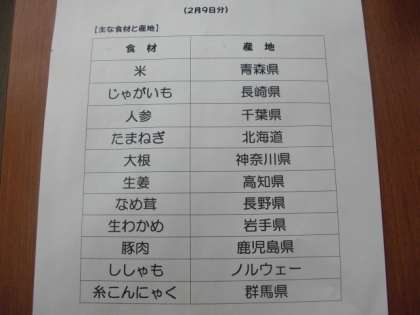 (2月9日分)
【主な食材と産地】
食材 産地
米 青森県
じゃがいも 長崎県
人参 千葉県
たまねぎ 北海道
大根 神奈川県
生姜 高知県
なめ茸 長野県
生わかめ 岩手県
豚肉 鹿児島県
ししゃも ノルウェー
糸こんにゃく 群馬県